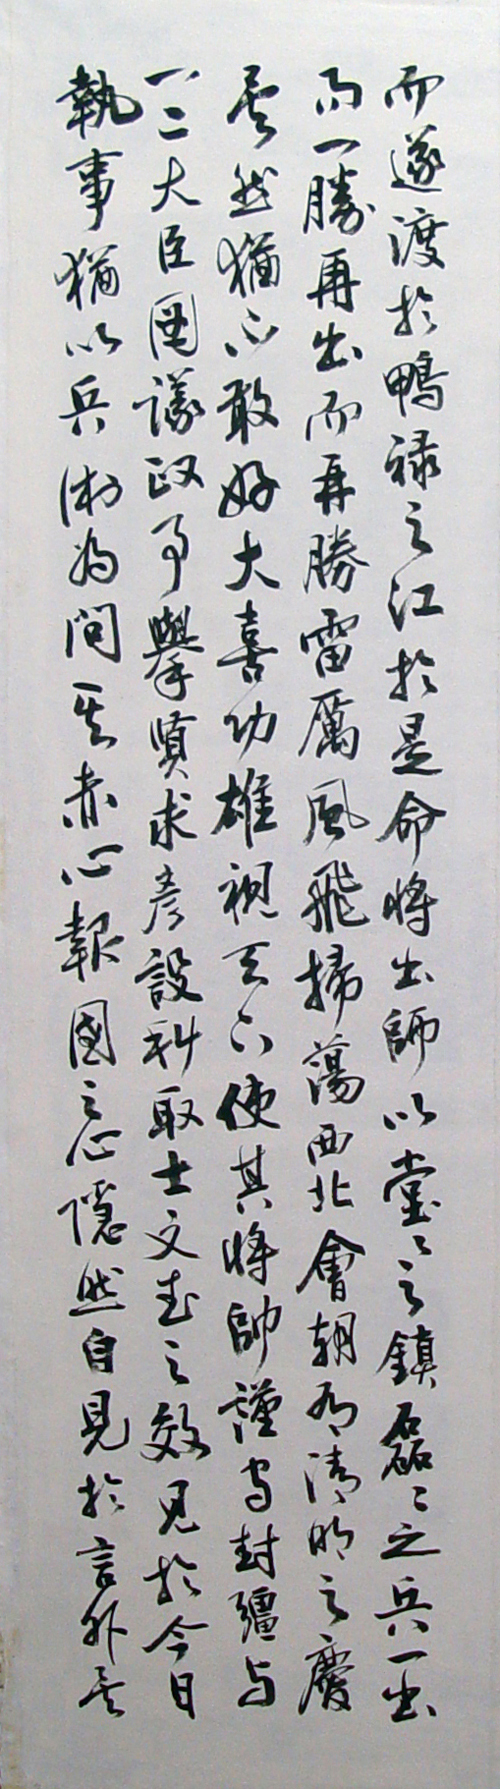 而遂渡於鴨祿之江於是命將出師以堂々之鎮磊々之兵一出
而一勝再出而再勝雷厲風飛掃蕩西北會朝有清明之慶
矣然猶不敢好大喜功雄視天下使其將帥謹守封疆与
一二大臣圖議政事舉賢求彥設科取士文武之效見於今日
執事猶以兵術為問其赤心報國之心隱然自見於言外矣